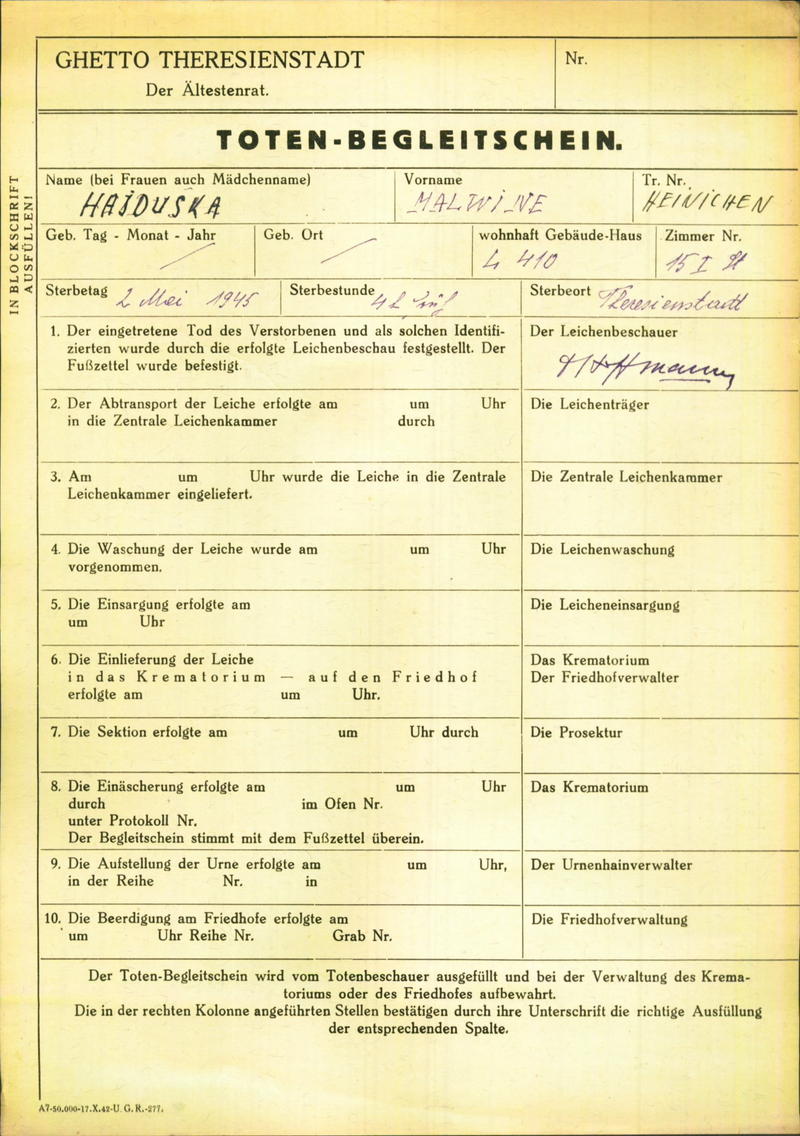 GHETTO THERESIENSTADT
Der Ältestenrat.
Nr.
TOTEN-BEGLEITSCHEIN.
IN BLOCKSCHRIFT
AUSFÜLLEN!
Name (bei Frauen auch Mädchenname)
HAJDUSKA
Vorname
MALWINE
Tr. Nr.
HEINICHEN
Geb. Tag - Monat - Jahr
Geb. Ort
wohnhaft Gebäude-Haus
L 410
Zimmer Nr.
15 I
Sterbetag 2 Mai 1945
Sterbestunde 4h
Sterbeort Theresienstadt
1. Der eingetretene Tod des Verstorbenen und als solchen Identifi-
zierten wurde durch die erfolgte Leichenbeschau festgestellt. Der
Fußzettel wurde befestigt.
Der Leichenbeschauer
2. Der Abtransport der Leiche erfolgte am um Uhr
in die Zentrale Leichenkammer durch
Die Leichenträger
3. Am um Uhr wurde die Leiche in die Zentrale
Leichenkammer eingeliefert.
Die Zentrale Leichenkammer
4. Die Waschung der Leiche wurde am um Uhr
vorgenommen.
Die Leichenwaschung
5. Die Einsargung erfolgte am
um Uhr
Die Leicheneinsargung
6. Die Einlieferung der Leiche
in das Krematorium — auf den Friedhof
erfolgte am um Uhr.
Das Krematorium
Der Friedhofverwalter
7. Die Sektion erfolgte am um Uhr durch
Die Prosektur
8. Die Einäscherung erfolgte am um Uhr
durch im Ofen Nr.
unter Protokoll Nr.
Der Begleitschein stimmt mit dem Fußzettel überein.
Das Krematorium
9. Die Aufstellung der Urne erfolgte am um Uhr,
in der Reihe Nr. in
Der Urnenhainverwalter
10. Die Beerdigung am Friedhofe erfolgte am
um Uhr Reihe Nr. Grab Nr.
Die Friedhofverwaltung
Der Toten-Begleitschein wird vom Totenbeschauer ausgefüllt und bei der Verwaltung des Krema-
toriums oder des Friedhofes aufbewahrt.
Die in der rechten Kolonne angeführten Stellen bestätigen durch ihre Unterschrift die richtige Ausfüllung
der entsprechenden Spalte.
A7-50.000-17.X.42-U. G. R.-277.